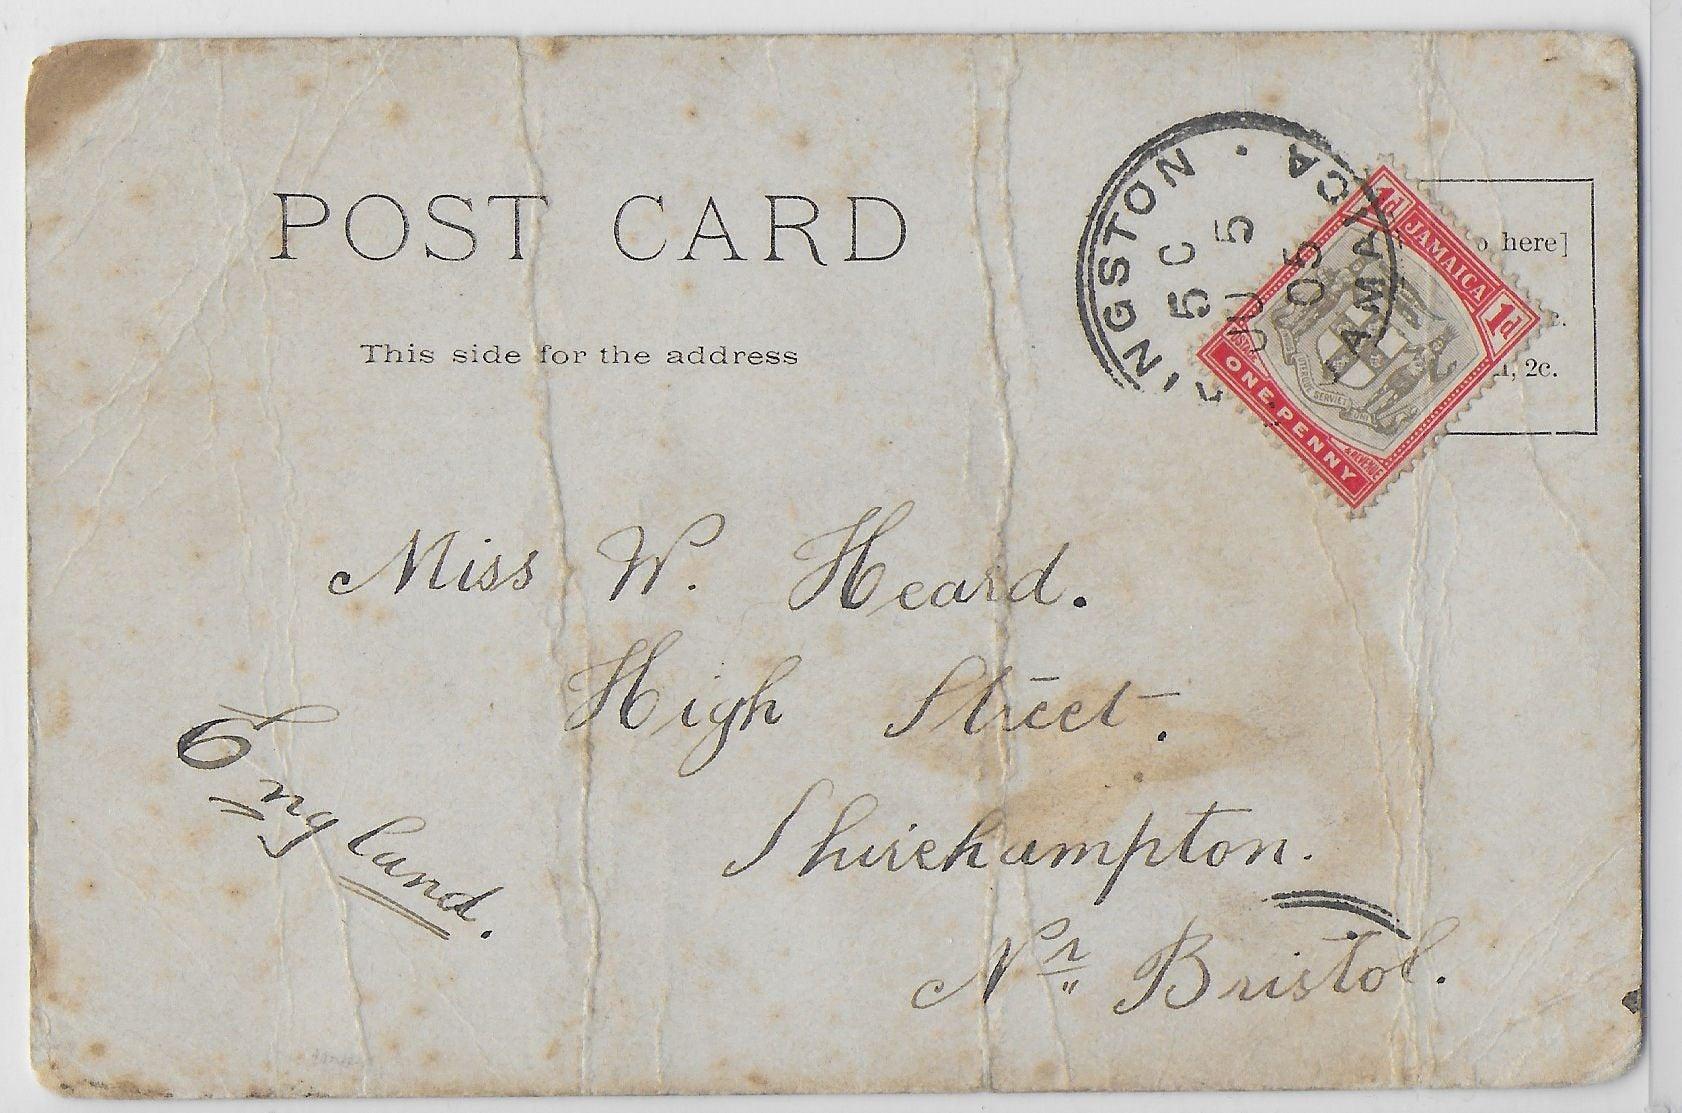 POST CARD
This side for the address
KINGSTON . JAMAICA
5 C
JU 5
05
1d JAMAICA 1d
ONE PENNY
& REVENUE
here]
2c.
Miss W. Heard.
High Street.
Shirehampton.
Nr Bristol.
England.